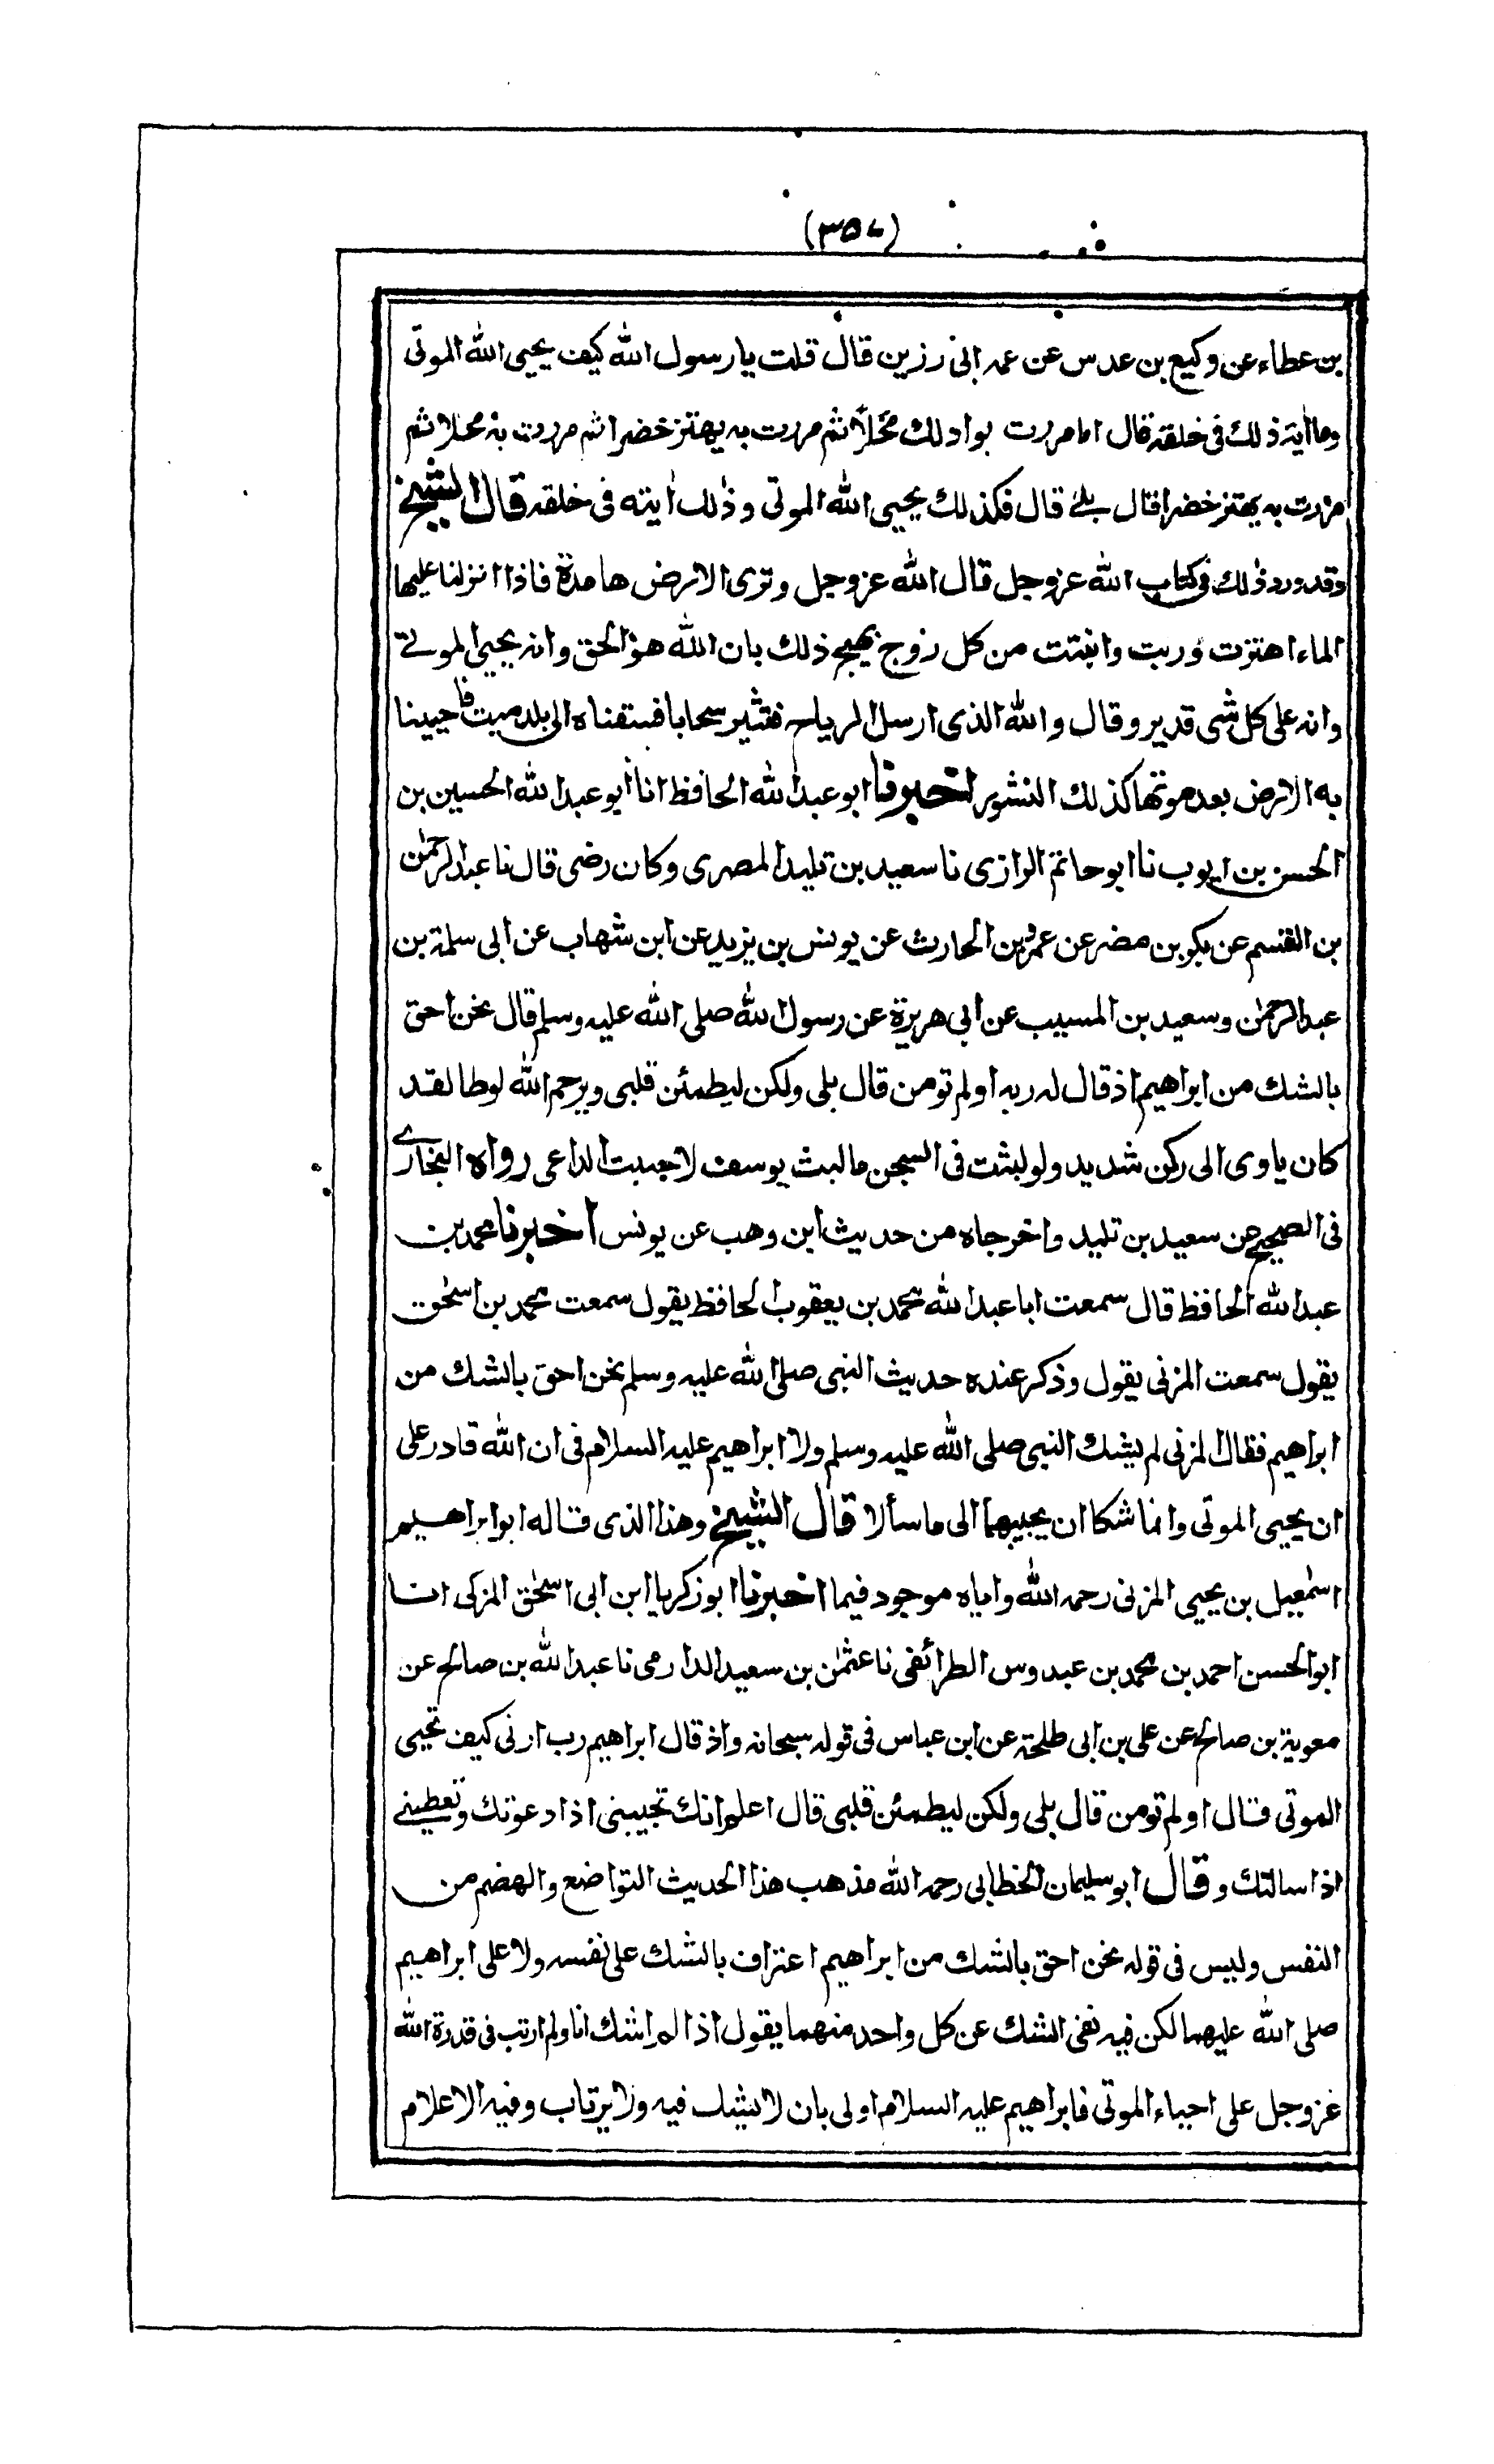 (٣٥٧)
بن عطاء عن وكيع بن عدس عن عمه ابى رزين قال قلت يا رسول الله كيف يحيى الله الموتى
وما اٰية ذلك فى خلقه قال اما مررت بواد لك محلا ثم مررت به يهتز خضرا ثم مررت به محلا ثم
مررت به يهتز خضرا قال بلے قال فكذلك يحيى الله الموتى وذٰلك اٰيته فى خلقه قال الشيخ
وقد ورد ذٰلك فى كتاب الله عزوجل قال الله عزوجل وترى الارض هامدة فاذا انزلنا عليها
الماء اهتزت وربت وانبتت من كل زوج بهيج ذلك بان الله هو الحق وانه يحيى الموتے
وانه على كل شى قدير وقال والله الذى ارسل الرياح فتثير سحابا فسقناه الى بلد ميت فاحيينا
به الارض بعد موتها كذلك النشور اخبرنا ابو عبد الله الحافظ انا ابو عبد الله الحسين بن
الحسن بن ايوب نا ابو حاتم الرازى نا سعيد بن تليد المصرى وكان رضى قال نا عبد الرحمٰن
بن القسم عن بكر بن مضر عن عمرو بن الحارث عن يونس بن يزيد عن ابن شهاب عن ابى سلمة بن
عبد الرحمٰن وسعيد بن المسيب عن ابى هريرة عن رسول الله صلى الله عليه وسلم قال نحن احق
بالشك من ابراهيم اذ قال له ربه اولم تومن قال بلى ولكن ليطمئن قلبى ويرحم الله لوطا لقد
كان ياوى الى ركن شديد ولو لبثت فى السجن ما لبث يوسف لاجبت الداعى رواه البخارے
فى الصحيح عن سعيد بن تليد واخرجاه من حديث ابن وهب عن يونس اخبرنا محمد بن
عبد الله الحافظ قال سمعت ابا عبد الله محمد بن يعقوب الحافظ يقول سمعت محمد بن اسحٰق
يقول سمعت المزنى يقول وذكر عنده حديث النبى صلى الله عليه وسلم نحن احق بالشك من
ابراهيم فقال المزنى لم يشك النبى صلى الله عليه وسلم ولا ابراهيم عليه السلام فى ان الله قادر على
ان يحيى الموتى وانما شكا ان يجيبهما الى ما سألا قال الشيخ وهذا الذى قاله ابو ابراهيم
اسمٰعيل بن يحيى المزنى رحمه الله واياه موجود فيما اخبرنا ابو زكريا ابن ابى اسحٰق المزكى انا
ابو الحسن احمد بن محمد بن عبدوس الطرائفى نا عثمٰن بن سعيد الدارمى نا عبد الله بن صالح عن
معوية بن صالح عن على بن ابى طلحة عن ابن عباس فى قوله سبحانه واذ قال ابراهيم رب ارنى كيف تحيى
الموتى قال اولم تومن قال بلى ولكن ليطمئن قلبى قال اعلم انك تجيبنى اذا دعوتك وتعطينے
اذا سالتك وقال ابو سليمان الخطابى رحمه الله مذهب هذا الحديث التواضع والهضم من
النفس وليس فى قوله نحن احق بالشك من ابراهيم اعتراف بالشك على نفسه ولا على ابراهيم
صلى الله عليهما لكن فيه نفى الشك عن كل واحد منهما يقول اذا لم اشك انا ولم ارتب فى قدرة الله
عزوجل على احياء الموتى فابراهيم عليه السلام اولى بان لا يشك فيه ولا يرتاب وفيه الاعلام